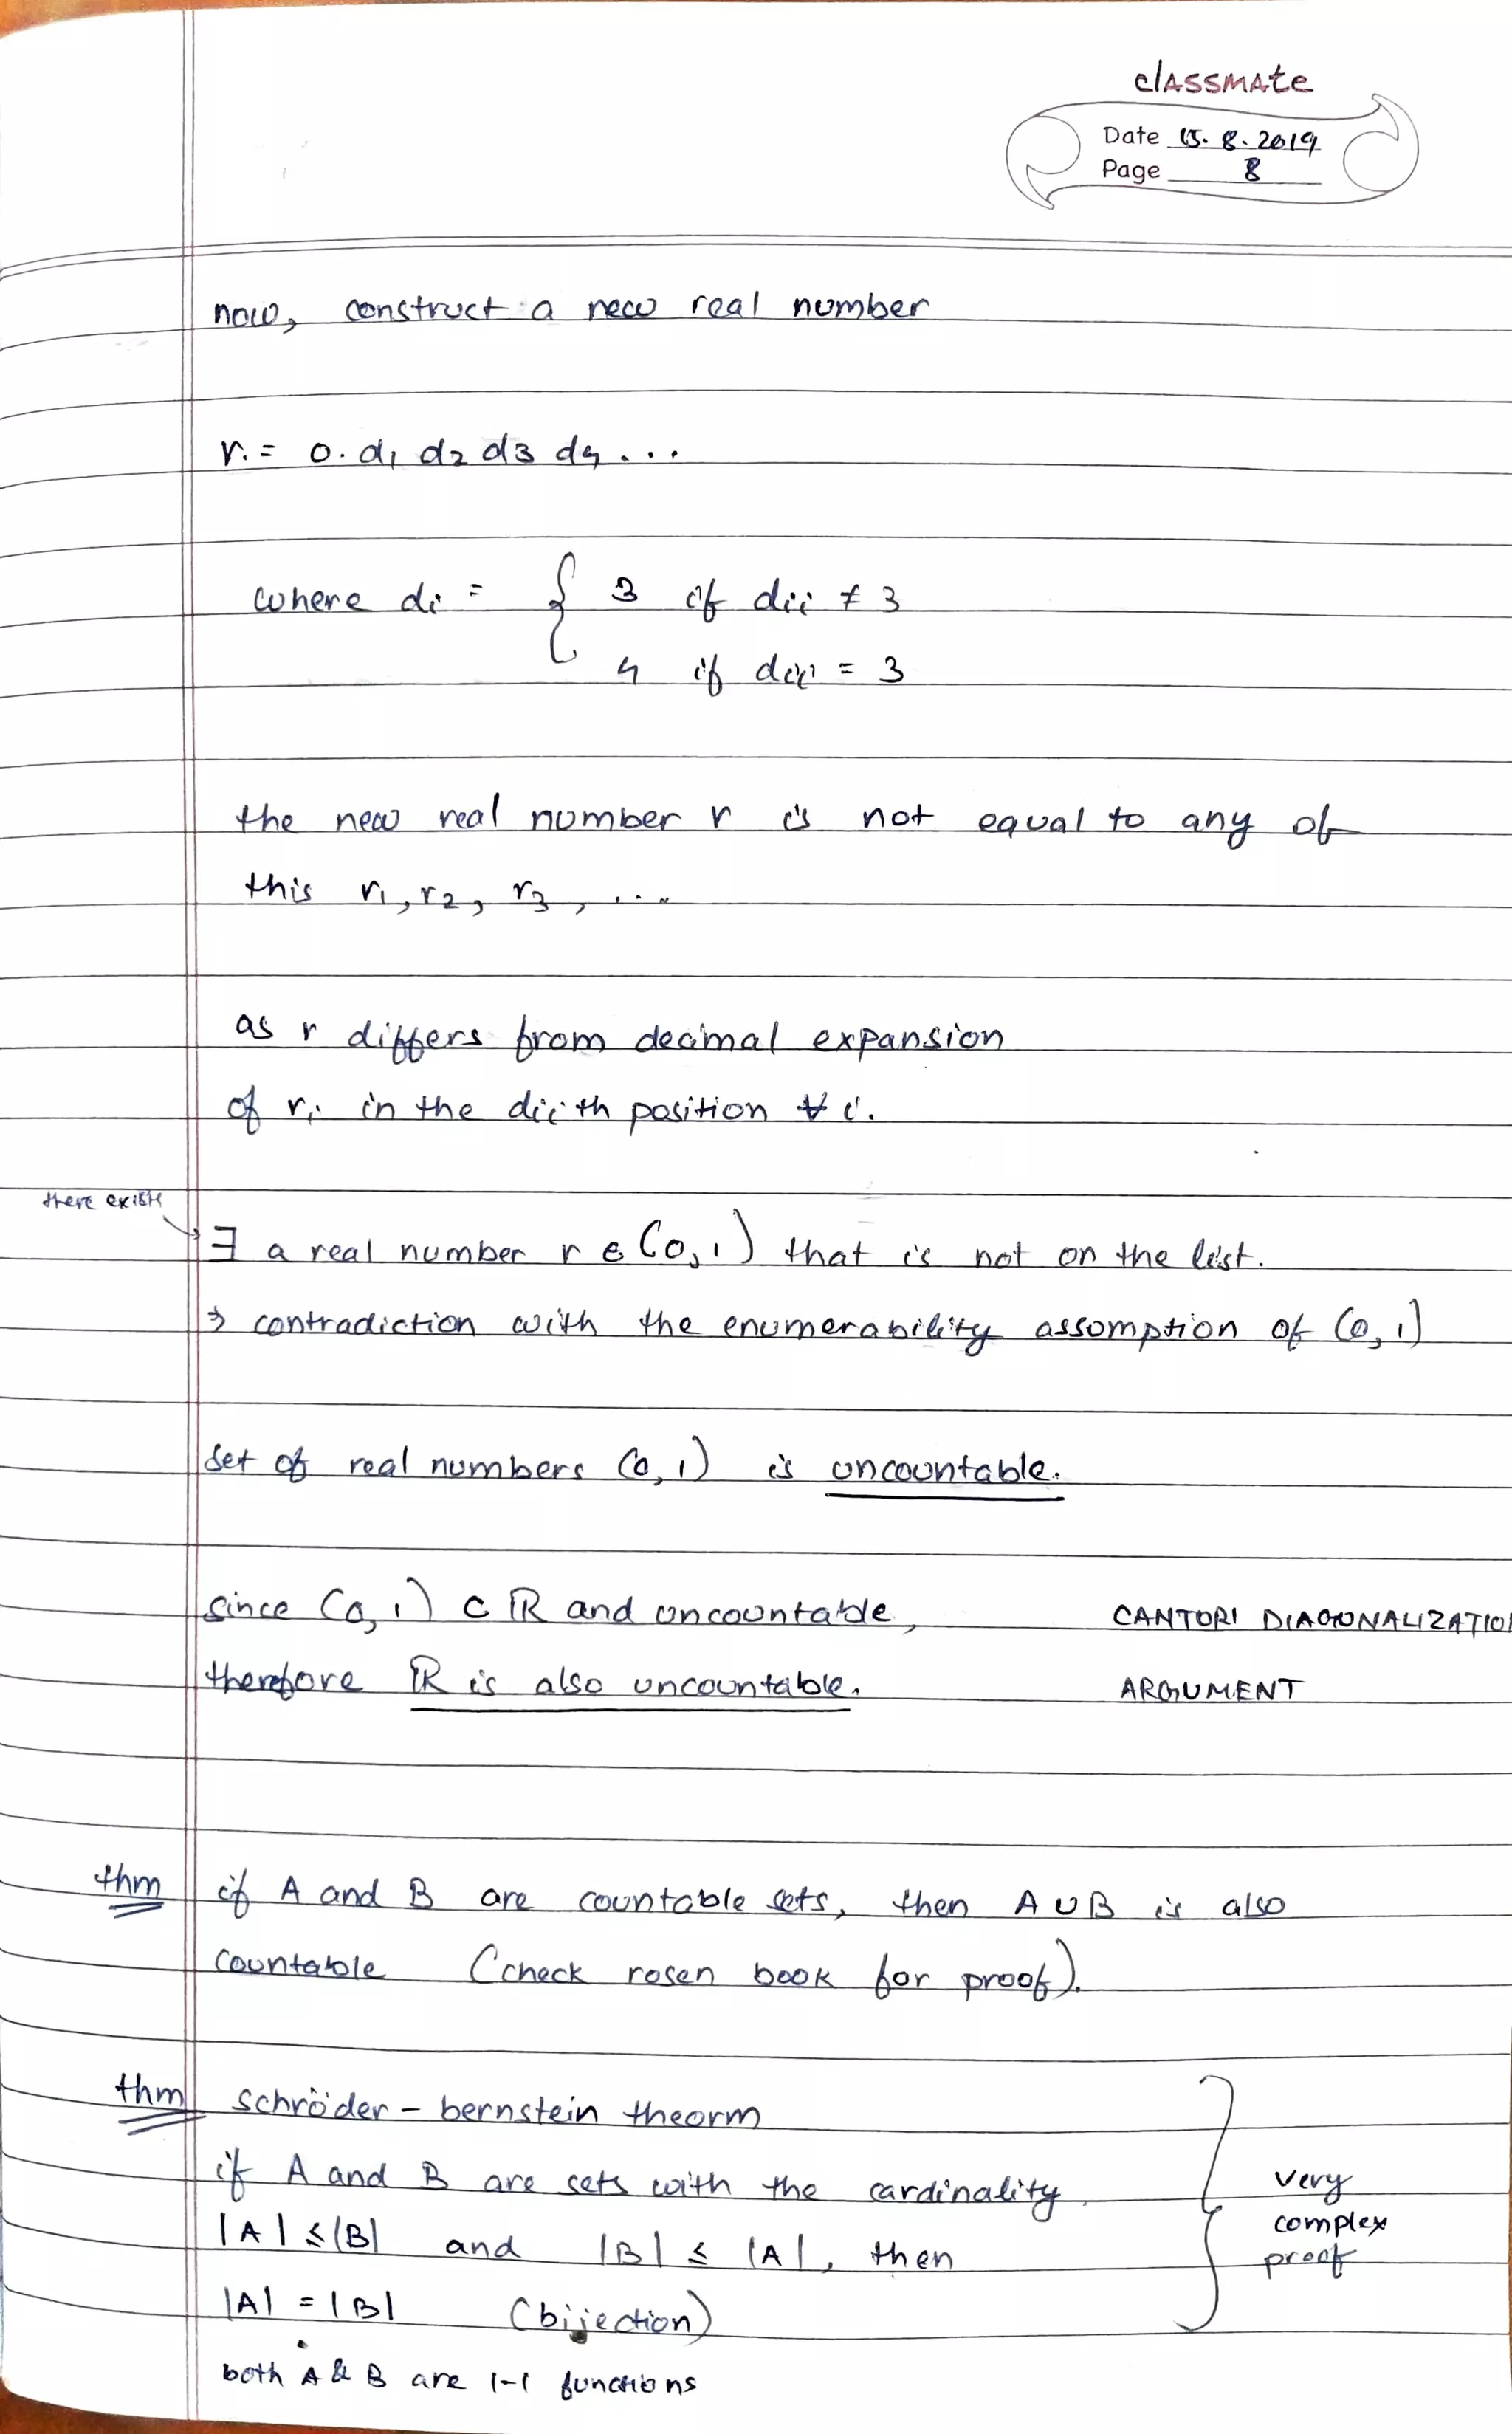 classmate
Date 15.8.2019
Page 8
now, construct a new real number
r = 0.d1 d2 d3 d4 ...
where di = { 3 if dii ≠ 3
4 if dii = 3
the new real number r is not equal to any of
this r1, r2, r3, ...
as r differs from decimal expansion
of ri in the dii th position ∀ i.
there exists
∃ a real number r ∈ (0,1) that is not on the list.
→ contradiction with the enumerability assumption of (0,1)
set of real numbers (0,1) is uncountable.
since (0,1) ⊂ ℝ and uncountable,
therefore ℝ is also uncountable.
CANTORI DIAGONALIZATIO
ARGUMENT
thm if A and B are countable sets, then A ∪ B is also
countable (check rosen book for proof).
thm schröder - bernstein theorm
if A and B are sets with the cardinality
|A| ≤ |B| and |B| ≤ |A|, then
|A| = |B| (bijection)
very
complex
proof
both A & B are 1-1 functions